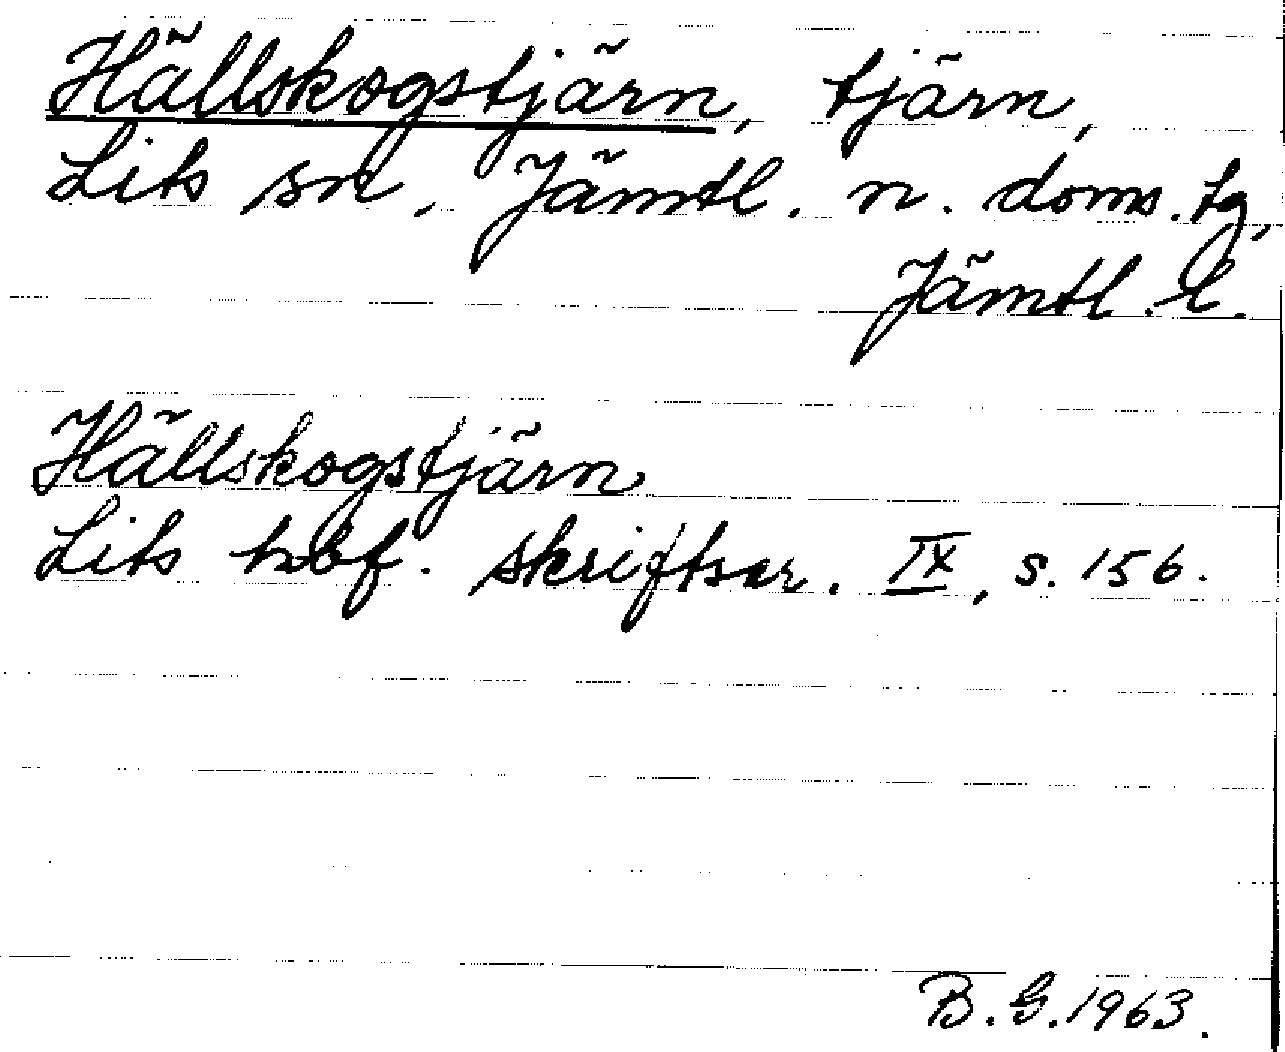 Hällskogstjärn, tjärn,
Lits sn, Jämtl. n. doms. tg,
Jämtl. l.
Hällskogstjärn
Lits hbf. skriftser. IX, s. 156.
B. G. 1963.